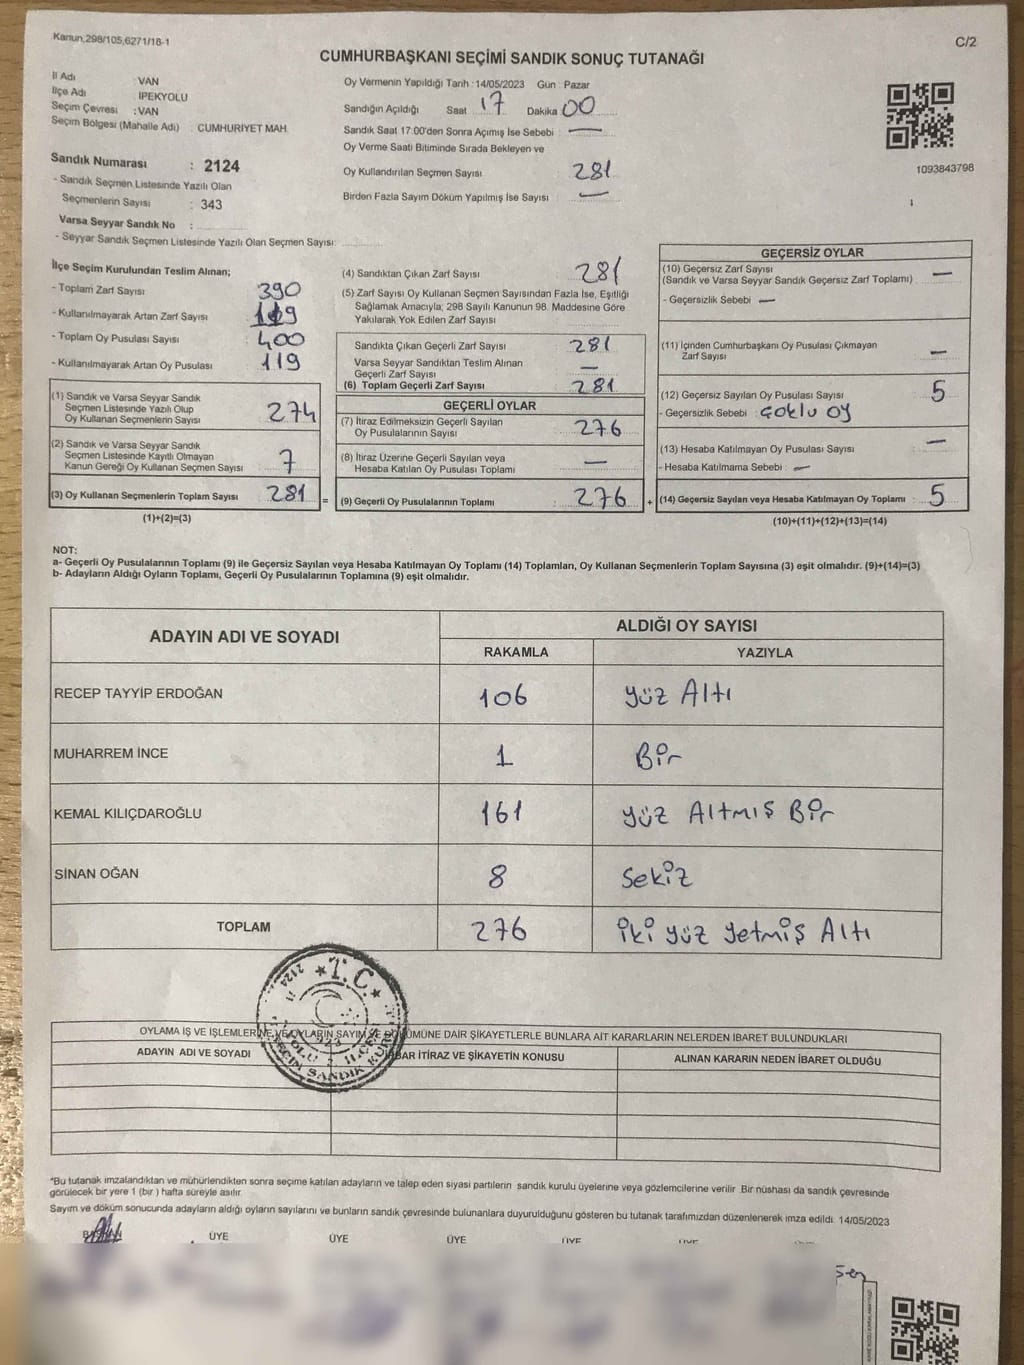 Kanun,298/105,6271/18-1
C/2
CUMHURBAŞKANI SEÇİMİ SANDIK SONUÇ TUTANAĞI
İl Adı : VAN
İlçe Adı : İPEKYOLU
Seçim Çevresi : VAN
Seçim Bölgesi (Mahalle Adı) : CUMHURİYET MAH.
Sandık Numarası : 2124
- Sandık Seçmen Listesinde Yazılı Olan
Seçmenlerin Sayısı : 343
Varsa Seyyar Sandık No :
- Seyyar Sandık Seçmen Listesinde Yazılı Olan Seçmen Sayısı:
Oy Vermenin Yapıldığı Tarih : 14/05/2023 Gün : Pazar
Sandığın Açıldığı Saat 17 Dakika 00
Sandık Saat 17:00'den Sonra Açımış İse Sebebi : —
Oy Verme Saati Bitiminde Sırada Bekleyen ve
Oy Kullandırılan Seçmen Sayısı 281
Birden Fazla Sayım Döküm Yapılmış İse Sayısı : —
1093843798
İlçe Seçim Kurulundan Teslim Alınan;
- Toplam Zarf Sayısı 390
- Kullanılmayarak Artan Zarf Sayısı 109
- Toplam Oy Pusulası Sayısı : 400
- Kullanılmayarak Artan Oy Pusulası : 119
(1) Sandık ve Varsa Seyyar Sandık
Seçmen Listesinde Yazılı Olup
Oy Kullanan Seçmenlerin Sayısı : 274
(2) Sandık ve Varsa Seyyar Sandık
Seçmen Listesinde Kayıtlı Olmayan
Kanun Gereği Oy Kullanan Seçmen Sayısı : 7
(3) Oy Kullanan Seçmenlerin Toplam Sayısı 281 =
(1)+(2)=(3)
(4) Sandıktan Çıkan Zarf Sayısı 281
(5) Zarf Sayısı Oy Kullanan Seçmen Sayısından Fazla İse, Eşitliği
Sağlamak Amacıyla; 298 Sayılı Kanunun 98. Maddesine Göre
Yakılarak Yok Edilen Zarf Sayısı
Sandıkta Çıkan Geçerli Zarf Sayısı : 281
Varsa Seyyar Sandıktan Teslim Alınan
Geçerli Zarf Sayısı —
(6) Toplam Geçerli Zarf Sayısı : 281
GEÇERLİ OYLAR
(7) İtiraz Edilmeksizin Geçerli Sayılan
Oy Pusulalarının Sayısı : 276
(8) İtiraz Üzerine Geçerli Sayılan veya
Hesaba Katılan Oy Pusulası Toplamı : —
(9) Geçerli Oy Pusulalarının Toplamı : 276 +
GEÇERSİZ OYLAR
(10) Geçersiz Zarf Sayısı
(Sandık ve Varsa Seyyar Sandık Geçersiz Zarf Toplamı) : —
- Geçersizlik Sebebi : —
(11) İçinden Cumhurbaşkanı Oy Pusulası Çıkmayan
Zarf Sayısı : —
(12) Geçersiz Sayılan Oy Pusulası Sayısı : 5
- Geçersizlik Sebebi : çoklu oy
(13) Hesaba Katılmayan Oy Pusulası Sayısı : —
- Hesaba Katılmama Sebebi : —
(14) Geçersiz Sayılan veya Hesaba Katılmayan Oy Toplamı : 5
(10)+(11)+(12)+(13)=(14)
NOT:
a- Geçerli Oy Pusulalarının Toplamı (9) ile Geçersiz Sayılan veya Hesaba Katılmayan Oy Toplamı (14) Toplamları, Oy Kullanan Seçmenlerin Toplam Sayısına (3) eşit olmalıdır. (9)+(14)=(3)
b- Adayların Aldığı Oyların Toplamı, Geçerli Oy Pusulalarının Toplamına (9) eşit olmalıdır.
ADAYIN ADI VE SOYADI
ALDIĞI OY SAYISI
RAKAMLA YAZIYLA
RECEP TAYYİP ERDOĞAN 106 yüz Altı
MUHARREM İNCE 1 Bir
KEMAL KILIÇDAROĞLU 161 yüz Altmış Bir
SİNAN OĞAN 8 Sekiz
TOPLAM 276 iki yüz yetmiş Altı
2124 ★ T.C. ★
SEÇİM SANDIK KURULU
OYLAMA İŞ VE İŞLEMLERİNE VE OYLARIN SAYIM VE DÖKÜMÜNE DAİR ŞİKAYETLERLE BUNLARA AİT KARARLARIN NELERDEN İBARET BULUNDUKLARI
ADAYIN ADI VE SOYADI İHBAR İTİRAZ VE ŞİKAYETİN KONUSU ALINAN KARARIN NEDEN İBARET OLDUĞU
*Bu tutanak imzalandıktan ve mühürlendikten sonra seçime katılan adayların ve talep eden siyasi partilerin sandık kurulu üyelerine veya gözlemcilerine verilir. Bir nüshası da sandık çevresinde
görülecek bir yere 1 (bir ) hafta süreyle asılır.
Sayım ve döküm sonucunda adayların aldığı oyların sayılarını ve bunların sandık çevresinde bulunanlara duyurulduğunu gösteren bu tutanak tarafımızdan düzenlenerek imza edildi. 14/05/2023
BAŞKAN ÜYE ÜYE ÜYE ÜYE ÜYE